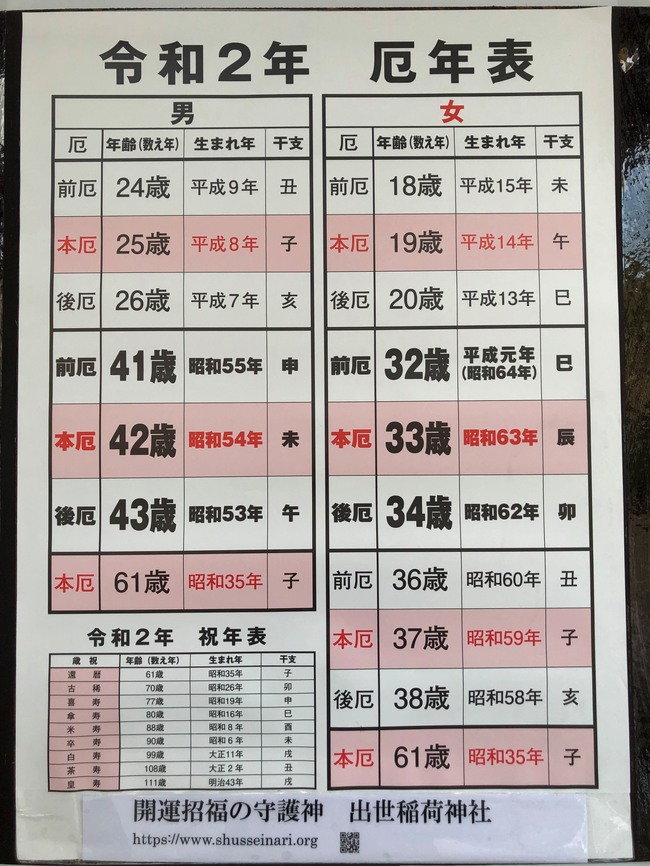 令和2年 厄年表
男
厄 年齢(数え年) 生まれ年 干支
前厄 24歳 平成9年 丑
本厄 25歳 平成8年 子
後厄 26歳 平成7年 亥
前厄 41歳 昭和55年 申
本厄 42歳 昭和54年 未
後厄 43歳 昭和53年 午
本厄 61歳 昭和35年 子
女
厄 年齢(数え年) 生まれ年 干支
前厄 18歳 平成15年 未
本厄 19歳 平成14年 午
後厄 20歳 平成13年 巳
前厄 32歳 平成元年(昭和64年) 巳
本厄 33歳 昭和63年 辰
後厄 34歳 昭和62年 卯
前厄 36歳 昭和60年 丑
本厄 37歳 昭和59年 子
後厄 38歳 昭和58年 亥
本厄 61歳 昭和35年 子
令和2年 祝年表
歳祝 年齢(数え年) 生まれ年 干支
還暦 61歳 昭和35年 子
古稀 70歳 昭和26年 卯
喜寿 77歳 昭和19年 申
傘寿 80歳 昭和16年 巳
米寿 88歳 昭和8年 酉
卒寿 90歳 昭和6年 未
白寿 99歳 大正11年 戌
茶寿 108歳 大正2年 丑
皇寿 111歳 明治43年 戌
開運招福の守護神 出世稲荷神社
https://www.shusseinari.org